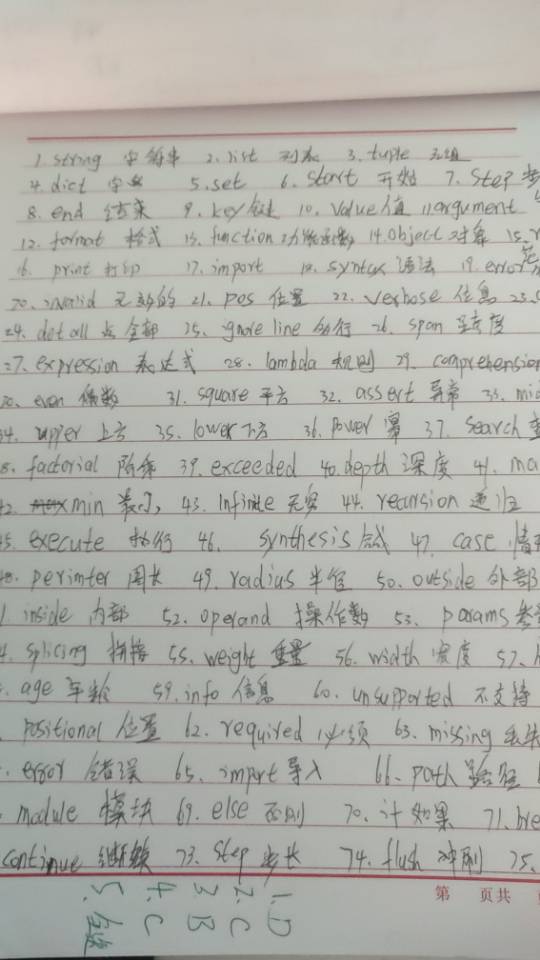 1. string 字符串 2. list 列表 3. tuple 元组
4. dict 字典 5. set 6. start 开始 7. Step
8. end 结束 9. key 键 10. value 值 11. argument
12. format 格式 13. function 功能函数 14. Object 对象 15.
16. print 打印 17. import 18. syntax 语法 19. error
20. invalid 无效的 21. pos 位置 22. verbose 信息 23.
24. dotall 点全部 25. ignore line 26. span
27. expression 表达式 28. lambda 规则 29. comprehension
30. even 偶数 31. square 平方 32. assert 异常 33. mid
34. upper 上方 35. lower 下方 36. Power 幂 37. Search
38. factorial 阶乘 39. exceeded 40. depth 深度 41. ma
42. min 最小 43. Infinite 无穷 44. recursion 递归
45. execute 执行 46. synthesis 47. case
48. perimter 周长 49. radius 半径 50. outside 外部
51. inside 内部 52. operand 操作数 53. params
54. splicing 拼接 55. weight 重量 56. width 宽度 57.
58. age 年龄 59. info 信息 60. unsupported 不支持
positional 位置 62. required 必须 63. missing 丢失
error 错误 65. import 导入 66. path 路径
module 模块 69. else 否则 70. 如果 71. bre
continue 继续 73. Step 步长 74. flush 冲刷 75.
第 页共
1. D
2. C
3. B
4. C
5.